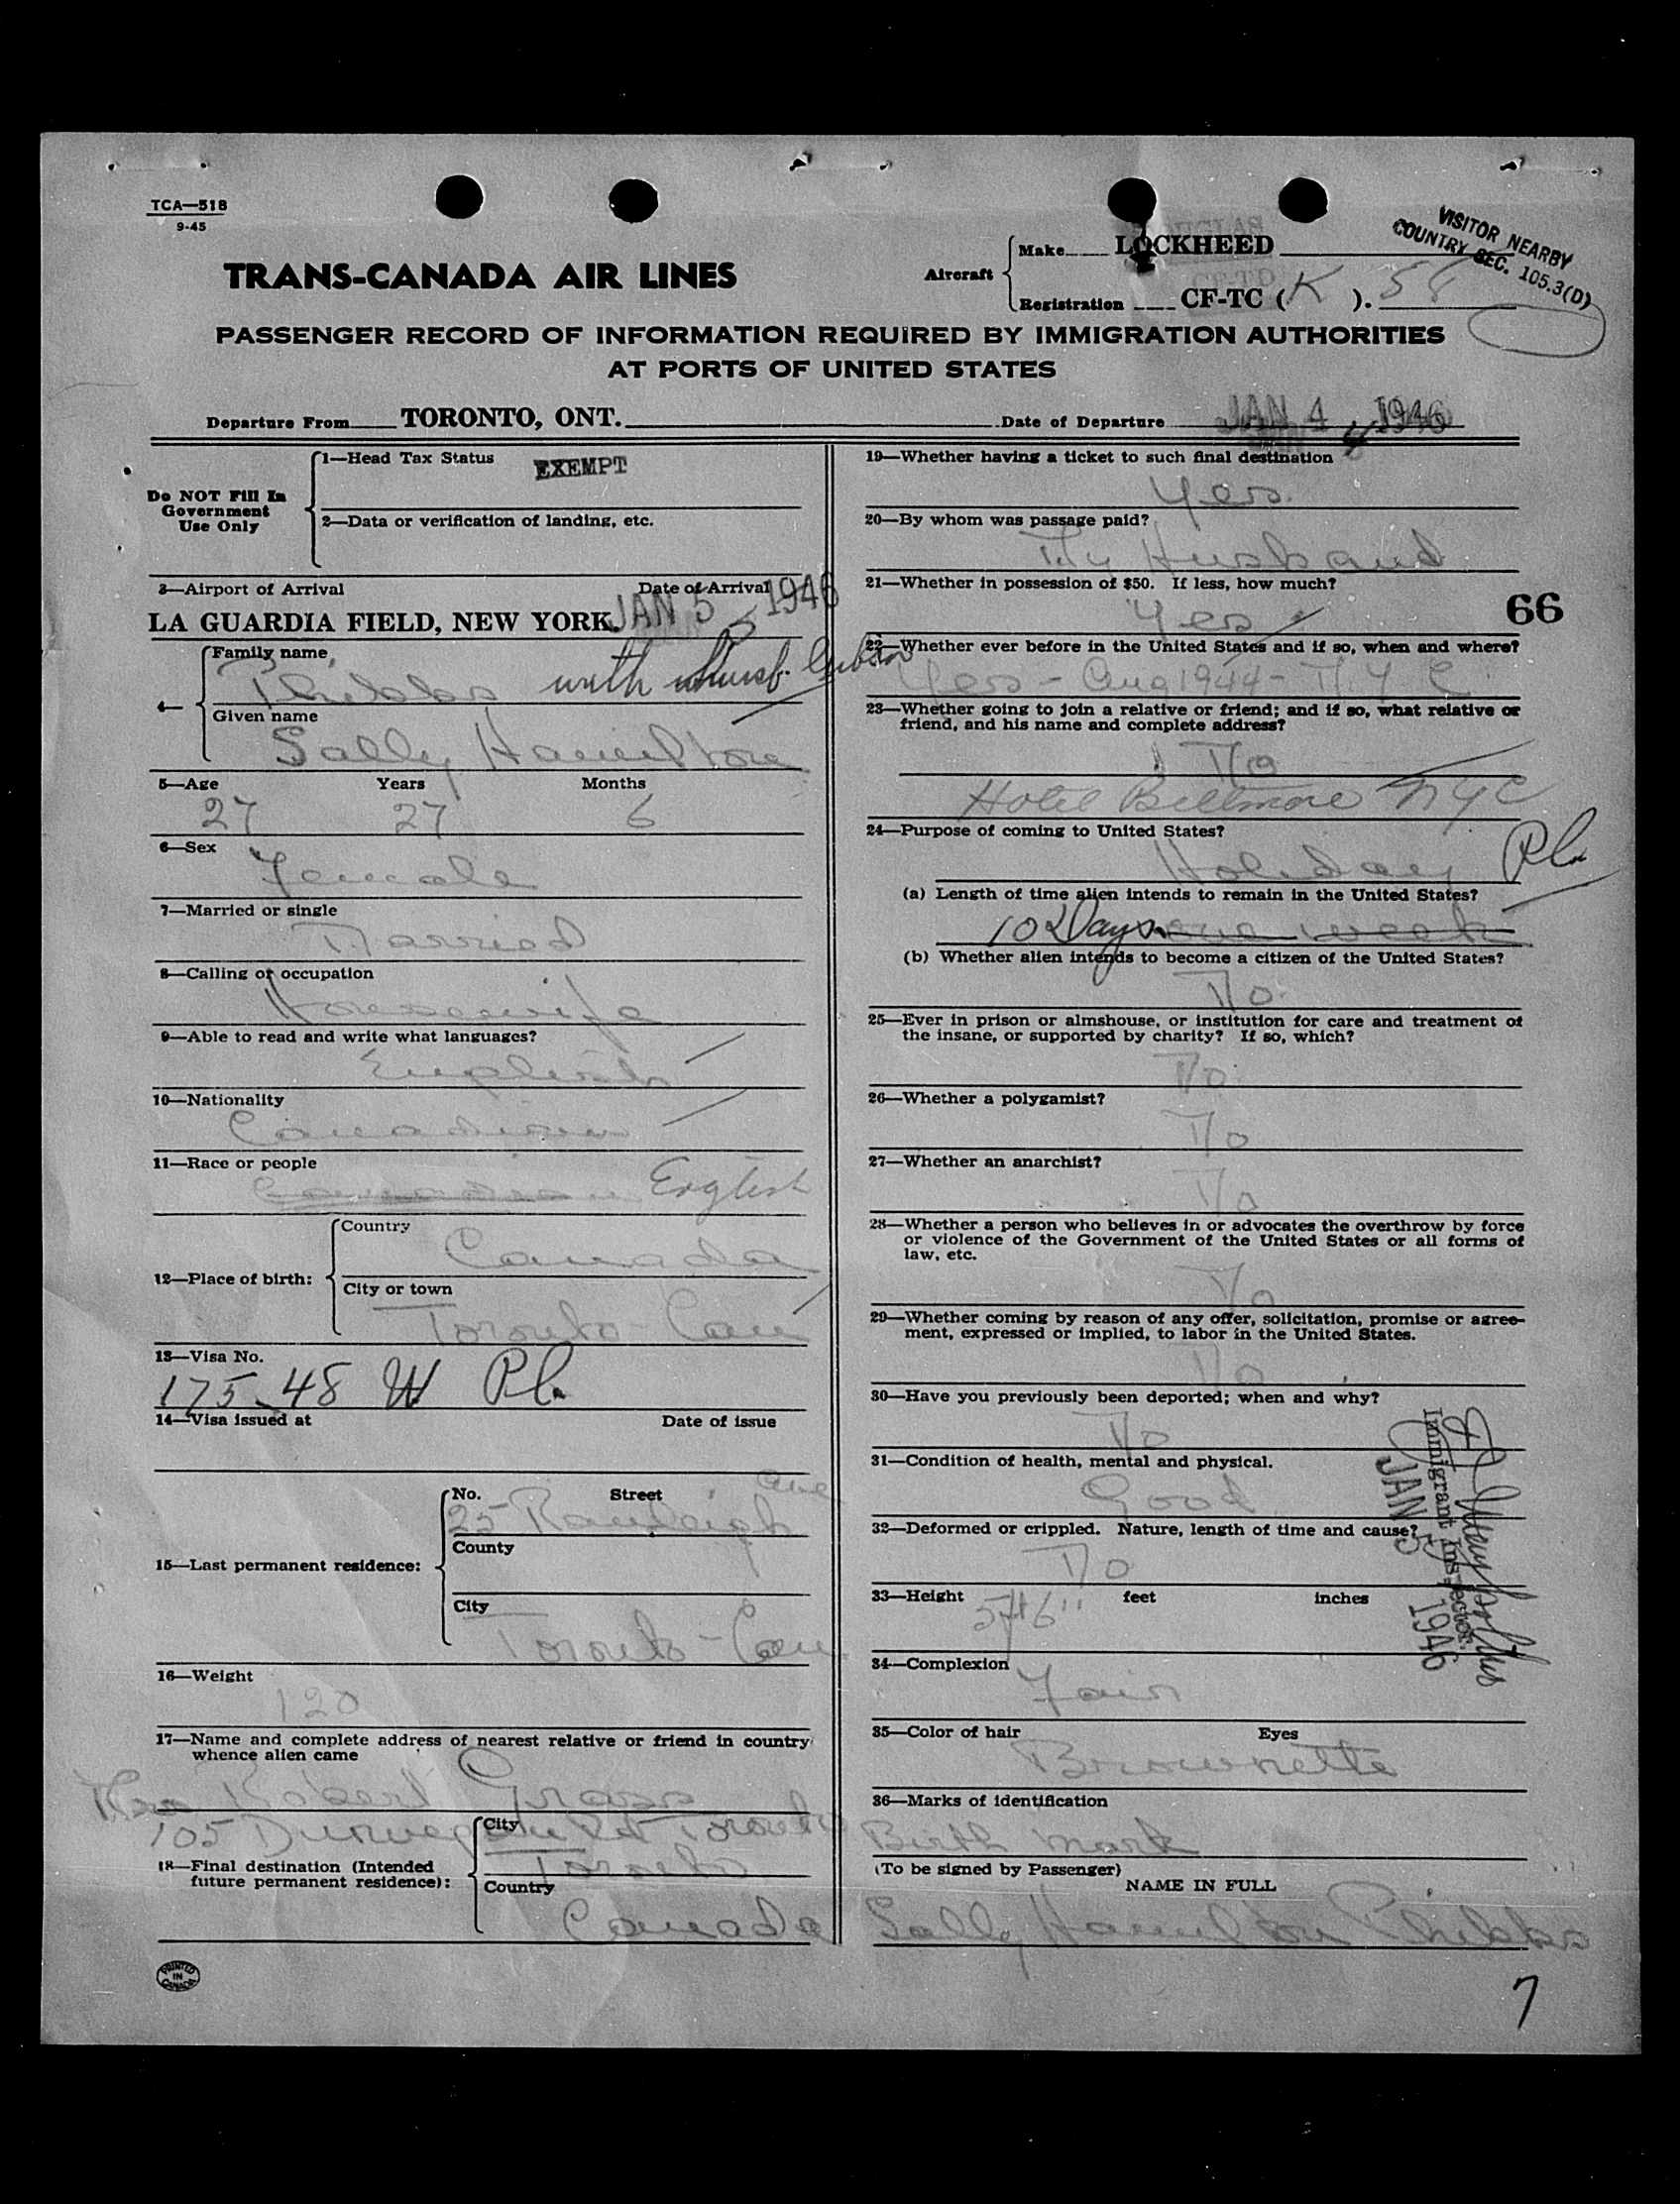 TCA—518
9-45
VISITOR NEARBY
COUNTRY SEC. 105.3(D)
TRANS-CANADA AIR LINES
Aircraft
Make LOCKHEED
Registration CF-TC (K).
PASSENGER RECORD OF INFORMATION REQUIRED BY IMMIGRATION AUTHORITIES
AT PORTS OF UNITED STATES
Departure From TORONTO, ONT. Date of Departure JAN 4 1946
Do NOT Fill In
Government
Use Only
1—Head Tax Status EXEMPT
2—Data or verification of landing, etc.
3—Airport of Arrival Date of Arrival
LA GUARDIA FIELD, NEW YORK. JAN 5 1946
4—
Family name
Phibbs with husb.
Given name
Sally Hamilton
5—Age Years Months
27 27 6
6—Sex
Female
7—Married or single
Married
8—Calling or occupation
Housewife
9—Able to read and write what languages?
English
10—Nationality
Canadian
11—Race or people
Canadian English
12—Place of birth:
Country
Canada
City or town
Toronto Can
13—Visa No.
175-48
14—Visa issued at Date of issue
15—Last permanent residence:
No. Street
25 Ave
County
City
Toronto - Can.
16—Weight
120
17—Name and complete address of nearest relative or friend in country
whence alien came
Mrs Robert Grass
105 Toronto
18—Final destination (Intended
future permanent residence):
City
Toronto
Country
Canada
PRINTED
IN
CANADA
19—Whether having a ticket to such final destination
Yes.
20—By whom was passage paid?
My Husband
21—Whether in possession of $50. If less, how much?
Yes
66
22—Whether ever before in the United States and if so, when and where?
Yes - Aug 1944 - N.Y.C.
23—Whether going to join a relative or friend; and if so, what relative or
friend, and his name and complete address?
No
Hotel Biltmore NYC
24—Purpose of coming to United States?
Holiday
(a) Length of time alien intends to remain in the United States?
10 Days one week
(b) Whether alien intends to become a citizen of the United States?
No.
25—Ever in prison or almshouse, or institution for care and treatment of
the insane, or supported by charity? If so, which?
No.
26—Whether a polygamist?
No
27—Whether an anarchist?
No
28—Whether a person who believes in or advocates the overthrow by force
or violence of the Government of the United States or all forms of
law, etc.
No
29—Whether coming by reason of any offer, solicitation, promise or agree-
ment, expressed or implied, to labor in the United States.
No
30—Have you previously been deported; when and why?
No
31—Condition of health, mental and physical.
Good
32—Deformed or crippled. Nature, length of time and cause?
No
Immigrant Inspector
JAN 5 1946
33—Height feet inches
5ft 6"
34—Complexion
Fair
35—Color of hair Eyes
Brownette
36—Marks of identification
Birth mark
(To be signed by Passenger)
NAME IN FULL
Sally Hamilton Phibbs
7